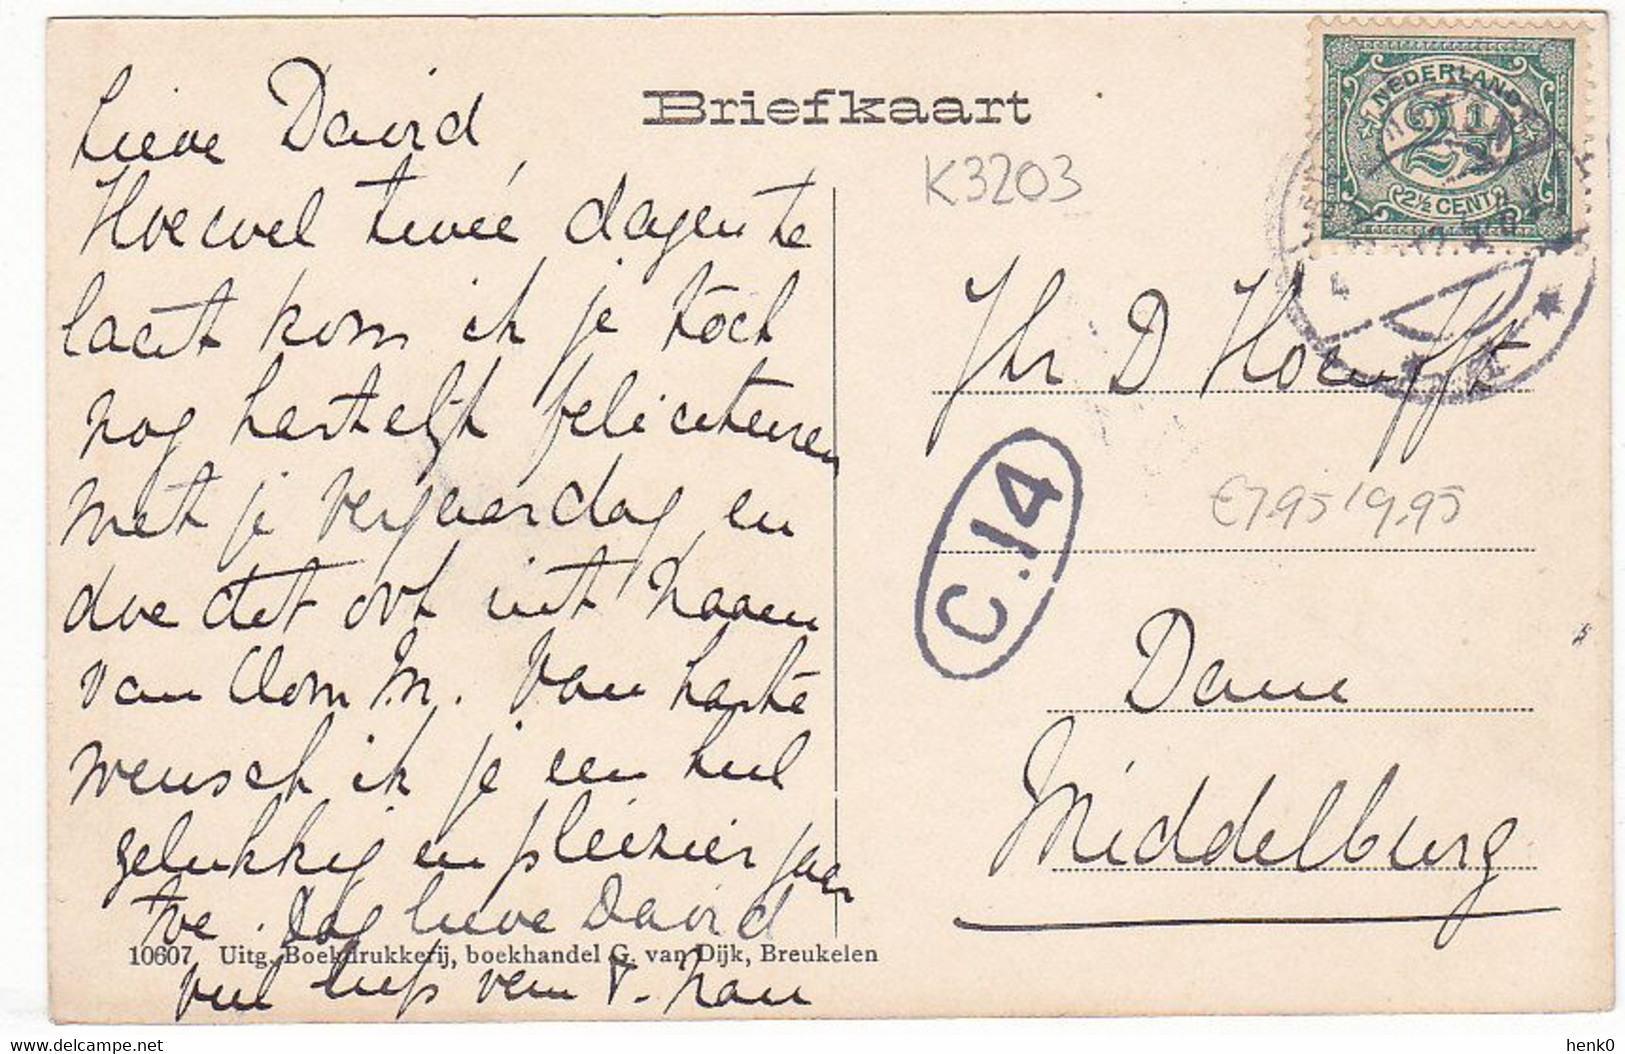 Briefkaart
Lieve David
Hoewel tweé dagen te
laat kom ik je toch
nog hartelijk feliciteeren
met je verjaardag en
doe dit ook uit naam
van Oom M. Van harte
wensch ik je een heel
gelukkig en pleizier jaar
toe. Dag lieve David
veel liefs van T.
K3203
NEDERLAND
2½
2½ CENT
Jhr D Hoeufft
C.14
€7.95/9,95
Dam
Middelburg
10607 Uitg. Boekdrukkerij, boekhandel G. van Dijk, Breukelen
henk0
Delcampe.net